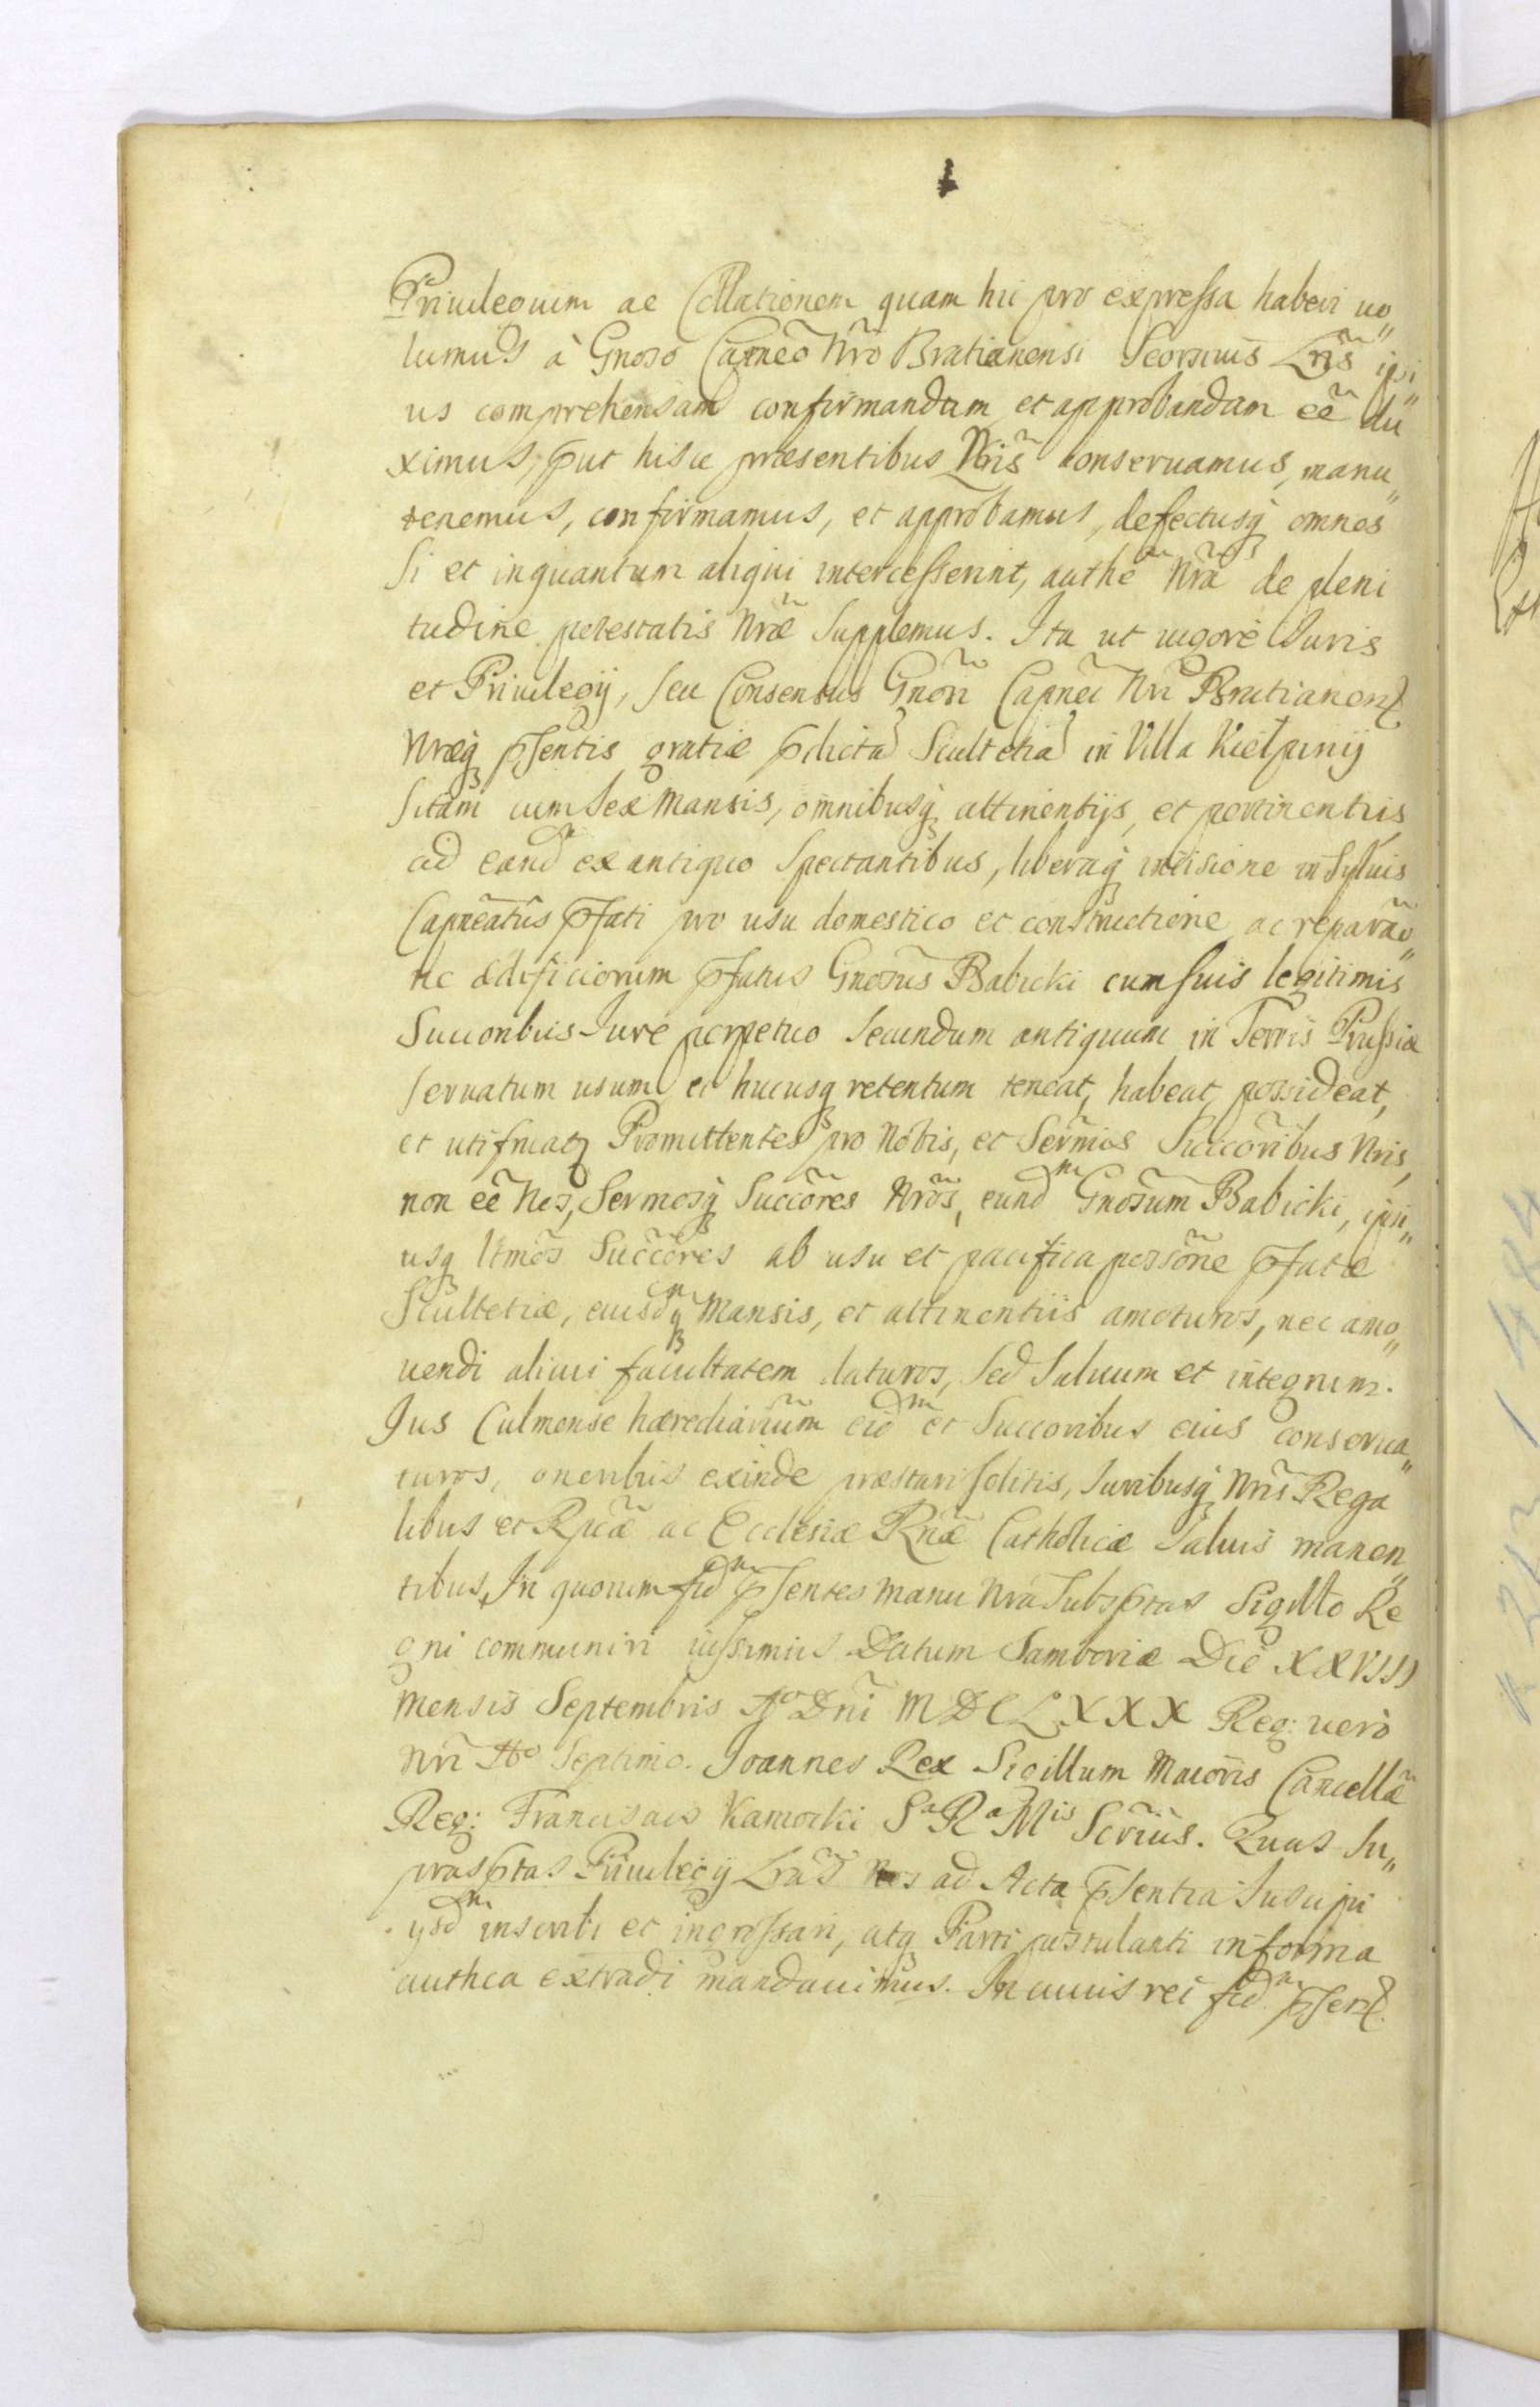 Priuilegium ac Collationem quam hic pro expressa haberi uo„
lumus à Gnoso Capneo Nro Bratianensi Seorsiuis Lris ipsi„
us comprehensam confirmandam et approbandam eẽ du„
ximus, put hisce præsentibus Nris conseruamus, manu„
tenemus, confirmamus, et approbamus, defectusq omnes
Si et inquantum aliqui intercesserint, authe Nra de pleni
tudine potestatis Nræ Supplemus. Ita ut uigore Juris
et Priuilegij, seu Consensus Gnosi Capnei Nri Bratianen
Nræq psentis gratiæ pdicta Scultetia in Villa Kiełpiny
Sitam cum Sex Mansis, omnibusq attinentijs, et pertinentiis
ad eand ex antiquo Spectantibus, liberaq incisione in Syluis
Capneatus pfati pro usu domestico et constructione ac reparao„
ne ædificiorum pfatus Gnosus Babicki cum suis legitimis
Succoribus Jure perpetuo Secundum antiquum in Terris Prussiæ
seruatum usum et hucusq retentum teneat, habeat, possideat,
et utifruatq Promittentes pro Nobis, et Sermis Succoribus Nris,
non eẽ Nos, Sermosq Succores Nros, eundm Gnosum Babicki, ipsi„
usq ltmos Succores ab usu et pacifica possone pfatæ
Scultetiæ, eiusdmq Mansis, et attinentiis amoturos, nec amo„
uendi alicui facultatem daturos, Sed Saluum et integrum.
Jus Culmense hærediarium eidm et Succoribus eius conserua„
turos, oneribus exinde præstari solitis, Juribusq Nris Rega
libus et Rpcæ ac Ecclesiæ Rnæ Catholicæ Saluis manen„
tibus, In quorum fidm psentes manu Nra Subsptas Sigillo Re
gni communiri iussimus Datum Samboriæ Die XXVIII
Mensis Septembris Ao Dni MDCLXXX Reg: uero
Nri Ao Septimo. Joannes Rex Sigillum Maioris Cancellæ
Reg: Franciscus Kamocki Sa Ra Mis Scrius. Quas Su„
prasptas Priuilegij Lras Nos ad Acta psentia Suscipi
ysdm inscribi et ingrossari, atq Parti postulanti in forma
authca extradi mandauimus. In cuius rei fidm psen